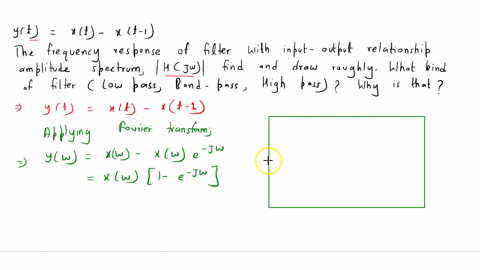 y(t) = x(t) - x(t-1)
The frequency response of filter with input-output relationship
amplitude spectrum, |H(jw)| find and draw roughly. What kind
of filter (Low pass, Band-pass, High pass)? Why is that?
⇒ y(t) = x(t) - x(t-1)
Applying Fourier transfam,
⇒ y(w) = x(w) - x(w) e^-Jw
= x(w) [1- e^-Jw]